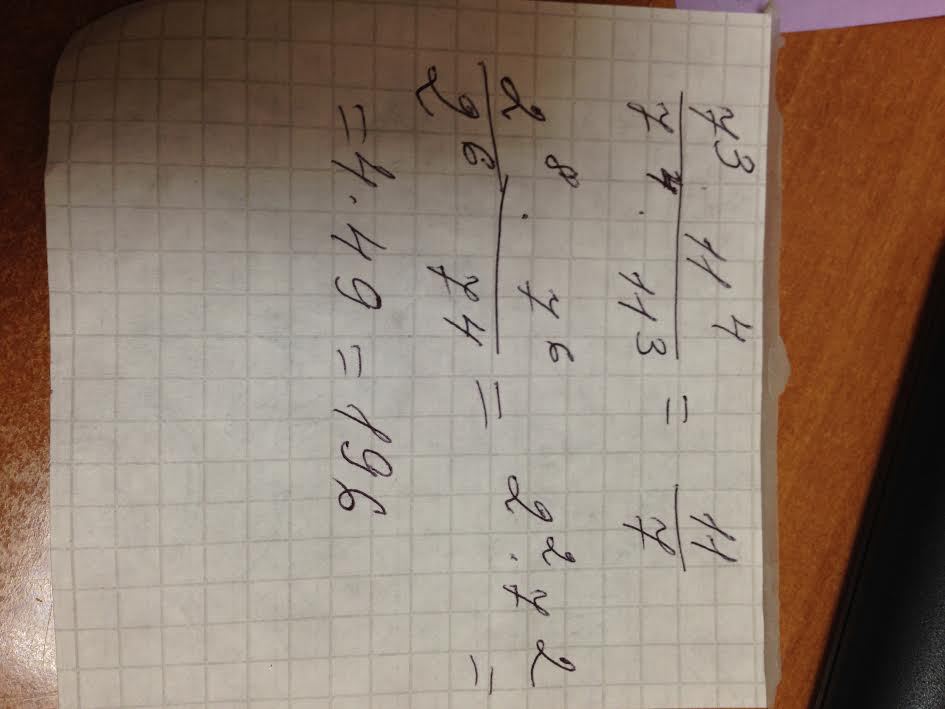 7³ · 11⁴ / 7⁴ · 11³ = 11 / 7
2⁸ · 7⁶ / 2⁶ · 7⁴ = 2² · 7² =
= 4 · 49 = 196